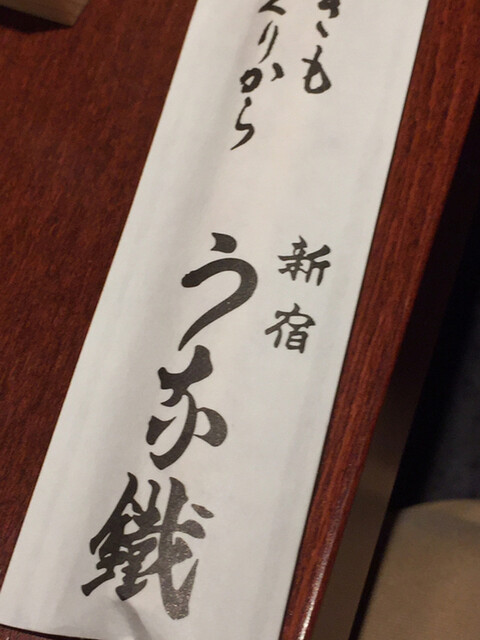 きも
くりから
新宿
うな鐵